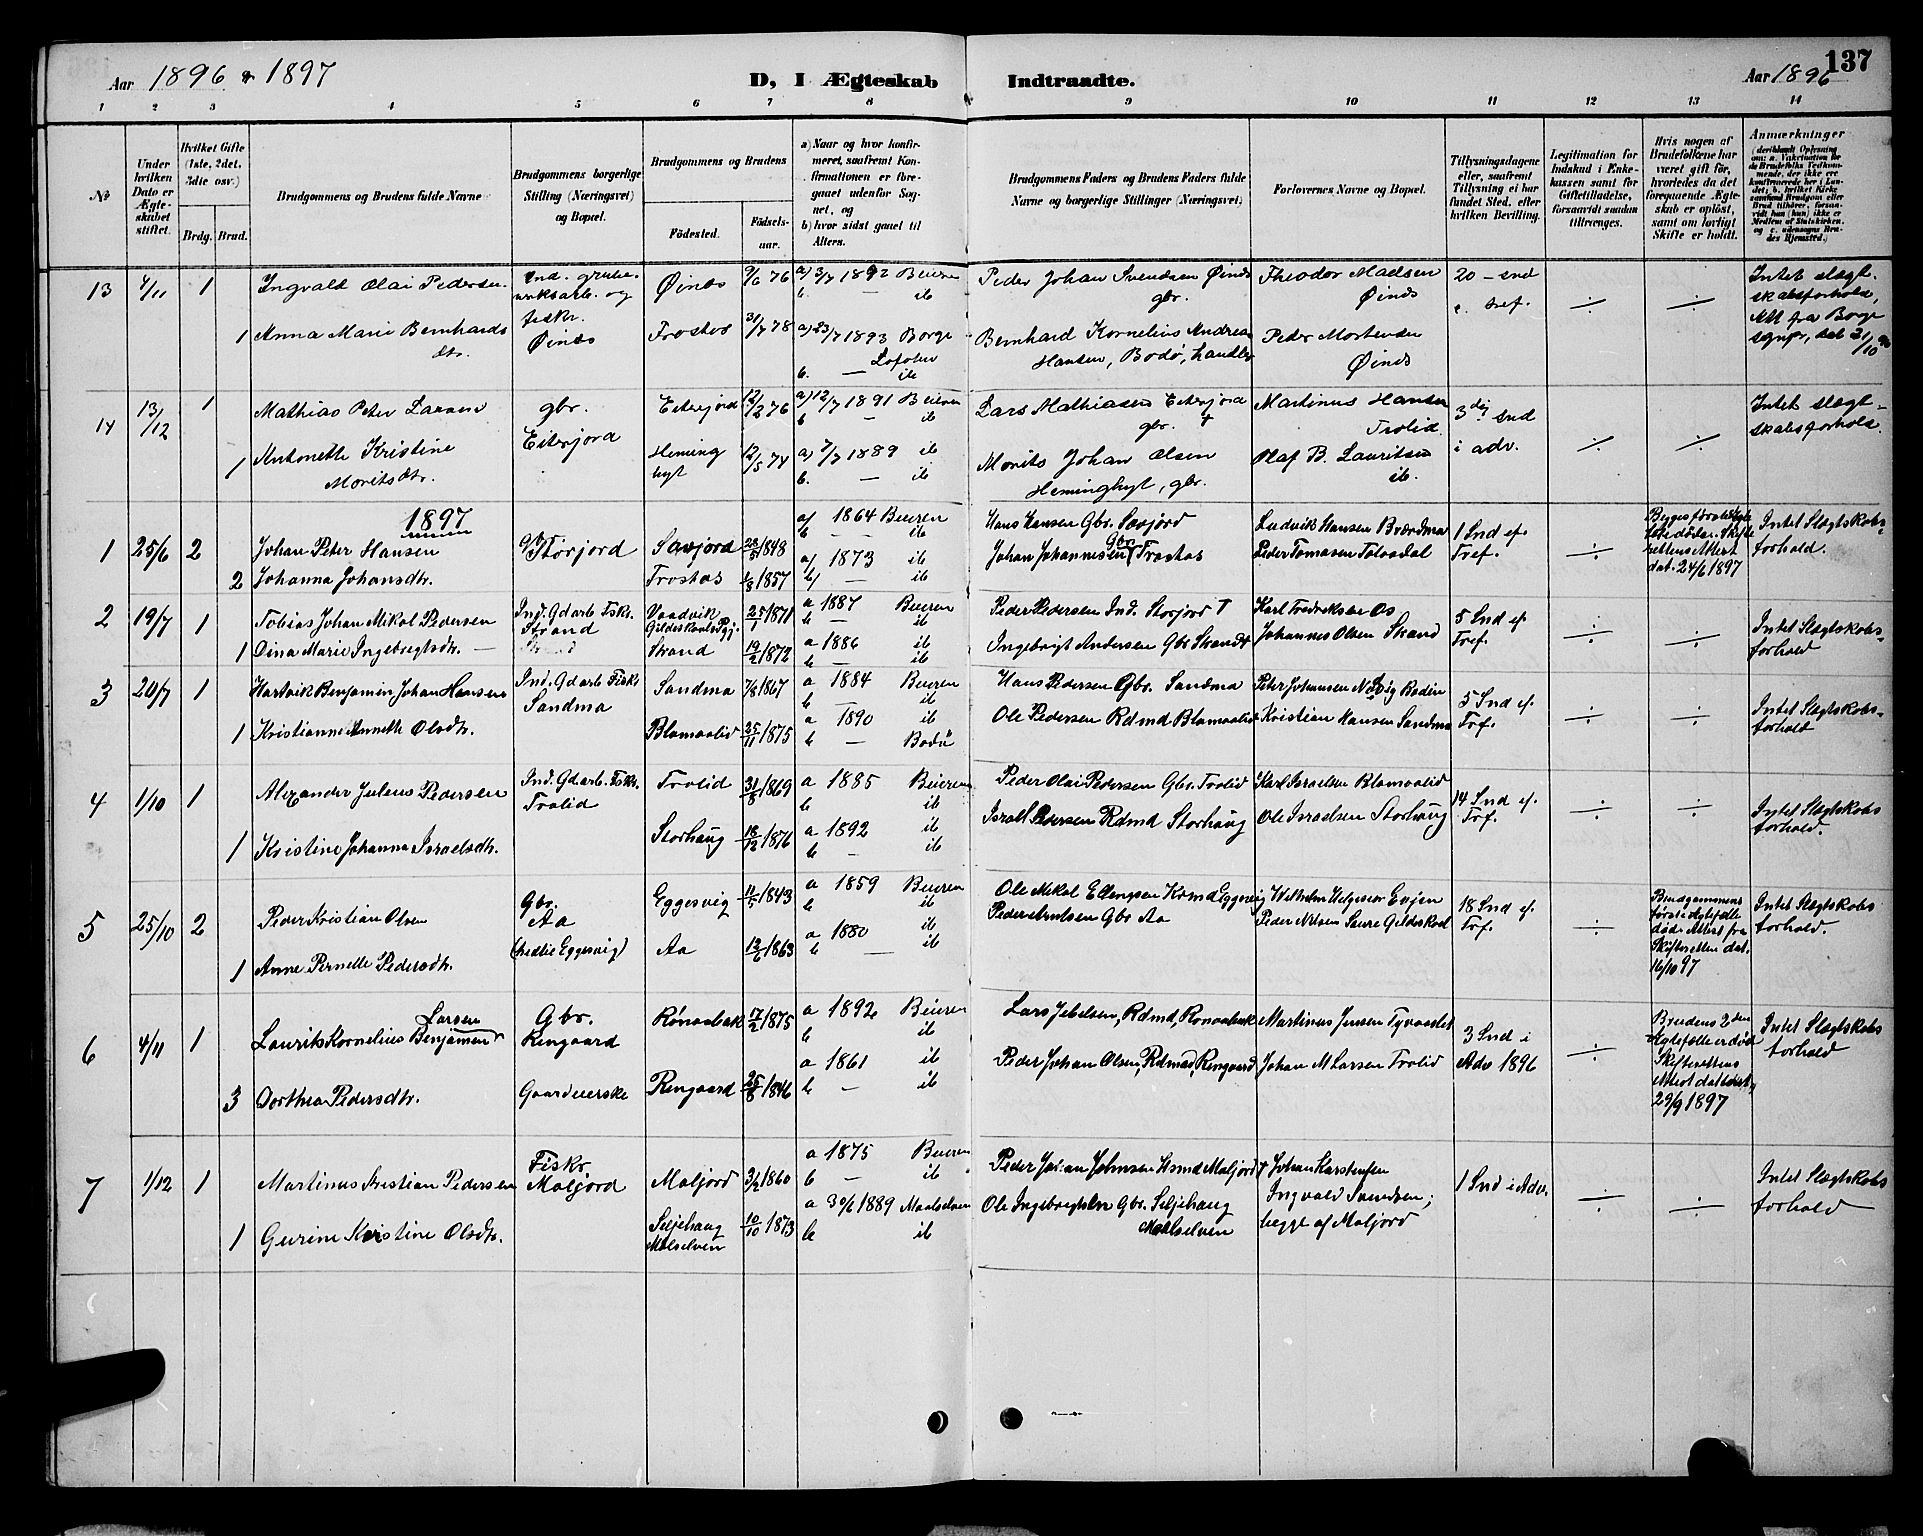 Aar 1896 & 1897
D, I Ægteskab Indtraadte.
Aar 1896
137
1 2 3 4 5 6 7 8 9 10 11 12 13 14
No
Under hvilken Dato er Ægteskabet stiftet.
Hvilket Gifte (1ste, 2det, 3die osv.)
Brdg. Brud.
Brudgommens og Brudens fulde Navne
Brudgommens borgerlige Stilling (Næringsvei) og Bopæl.
Brudgommens og Brudens
Fødested.
Fødselsaar.
a) Naar og hvor konfirmeret, saafremt Konfirmationen er foregaaet udenfor Sognet, og
b) hvor sidst gaaet til Alters.
Brudgommens Faders og Brudens Faders fulde Navne og borgerlige Stillinger (Næringsvei)
Forlovernes Navne og Bopæl.
Tillysningsdagene eller, saafremt Tillysning ei har fundet Sted, efter hvilken Bevilling.
Legitimation for Indskud i Enkekassen samt for Giftetilladelse, forsaavidt saadan tiltrænges.
Hvis nogen af Brudefolkene har været gift før, hvorledes da det foregaaende Ægteskab er opløst, samt om lovligt Skifte er holdt.
Anmærkninger
13 7/11 1 Ingvald Olai Pedersen
Ind. grube-
verksarb. og
fiskr.
Øinæs
Øinæs 9/6 76 a) 3/7 1892 Beieren
b. — ib
Peder Johan Svendsen Øinæs
gbr.
Theodor Madsen
Øinæs
20 - snd
e. tref.
÷ ÷
Intet slægt-
skabsforhold,
Att fra Borge
sognepr., dat 21/10 96
1 Anna Marie Bernhards
dtr.
31/7 78 a) 23/7 1893 Borge
Lofoten
b. — ib
Bernhard Kornelius Andreas
Hansen, Bodø, handler
Peder Mortensen
Øinæs
14 13/12 1 Mathias Peter Larsen
gbr.
Eiterjord
Eiterjord 12/2 76 a) 12/7 1891 Beieren
b — ib
Lars Mathiasen Eiterjord
gbr. †
Martinus Hansen
Trolid
3die snd
i adv.
÷ ÷
Intet slægt-
skabsforhold.
1 Antonette Kristine
Moritsdtr.
Heming
hyt
12/5 74 a) 7/7 1889 ib
b. — ib
Morits Johan Olsen
Heminghyt, gbr.
Olaf B. Lauritsen
ib.
1897
1 25/6 2 Johan Peter Hansen
Gbr Storjord
Savjord 28/5 1848
a/ 1864 Beieren
b — ib
Hans Hansen Gbr.
Ludvik Hansen
1 Snd ef
Tref.
÷
dat. 24/6 1897
Intet Slægtskabs-
forhold.
2 Johanna Johansdtr.
1/8 1857
a/ 1873 ib
b/ — ib
Johan Johannesen Gbr
Peder Tomasen Tolvadal
2 19/7 1 Tobias Johan Mikal Pedersen
Ind. Gdarb. Fskr.
Strand
Vaadvik
Gildeskaals Pgj.
25/1 1871
a 1887 Beieren
b — ib
Peder Pedersen Ind. Storjord †
Karl Fredriksen Os
5 Snd ef.
Tref.
÷ ÷
Intet Slægtskabs-
forhold
1 Dina Marie Ingebrigtsdtr. —
Strand 19/2 1872
a 1886 ib
b — ib
Ingebrigt Andersen Gbr Strand †
Johannes Olsen Strand
3 20/7 1 Hartvik Benjamin Johan Hansen
Ind. Gdarb Fiskr
Sandmo
Sandmo 7/8 1867
a 1884 Beieren
b — ib
Hans Pedersen Gbr. Sandmo
5 Snd ef.
Tref.
÷ ÷
Intet Slægtskabs-
forhold
1 Kristianne Annette Olsdtr.
Blamoalid 25/11 1875
a 1890 ib
b — Bodø
Ole Pedersen Rdmd Blamoalid
Kristian Hansen Sandmo
4 1/10 1 Alexander Julius Pedersen
Ind. Gdarb. Fskr.
Trolid
Trolid 31/8 1869
a 1885 Beieren
b ib
Peder Olai Pedersen Gbr. Trolid
Karl Israelsen Blamoalid
14 Snd ef.
Tref.
÷ ÷
Intet Slægtskabs
forhold.
1 Kristine Johanna Israelsdtr.
Storhaug 18/12 1876
a 1892 ib
b — ib
Israel Pedersen Rdmd Storhaug
Ole Israelsen Storhaug
5 25/10 2 Peder Kristian Olsen
Gbr.
Aa
(hedte Eggesvig)
Eggesvig 11/5 1843
a 1859 Beieren
b ib
Ole Mikal Ellingsen Eggesvig
Wilhelm Helgesen Evjen
18 Snd ef.
Tref.
÷
Brudgommens
første Ægtefelle
død. Attest fra
Skifteretten dat.
16/10 97
Intet Slægtskabs
forhold.
1 Anne Pernelle Pedersdtr.
Aa 12/6 1863
a 1880 ib
b — ib
Peder Arntsen Gbr Aa
Peder Nilsen Saure Gildeskaal
6 4/11 1 Laurits Kornelius Benjamin Larsen
Gbr.
Rengaard
17/2 1875
a 1892 Beieren
b ib
Martinus Jensen
3 Snd i
Adv 1896
÷
Brudens 2den
Ægtefelle er død
Skifterettens
Attest dateret
29/9 1897
Intet Slægtskabs
forhold
3 Dorthea Pedersdtr.
Gaardeierske
Rengaard 25/8 1846
a 1861 ib
b — ib
Peder Johan Olsen, Rdmd, Rengaard
Johan M Larsen Trolid
7 1/12 1 Martinus Kristian Pedersen
Fiskr
Moljord
Moljord 3/2 1860
a 1875 Beieren
b — ib
Peder Johan Johnsen Hsmd Moljord †
Johan Karstensen
Ingvald Svendsen;
begge af Moljord
1 Snd i Adv.
÷ ÷
Intet Slægtskabs
forhold
1 Gurine Kristine Olsdtr.
Seljehaug
Målselven
10/10 1873
a 30/6 1889 Maalselven
b ib
Ole Ingebrigtsen Gbr. Seljehaug
Målselven